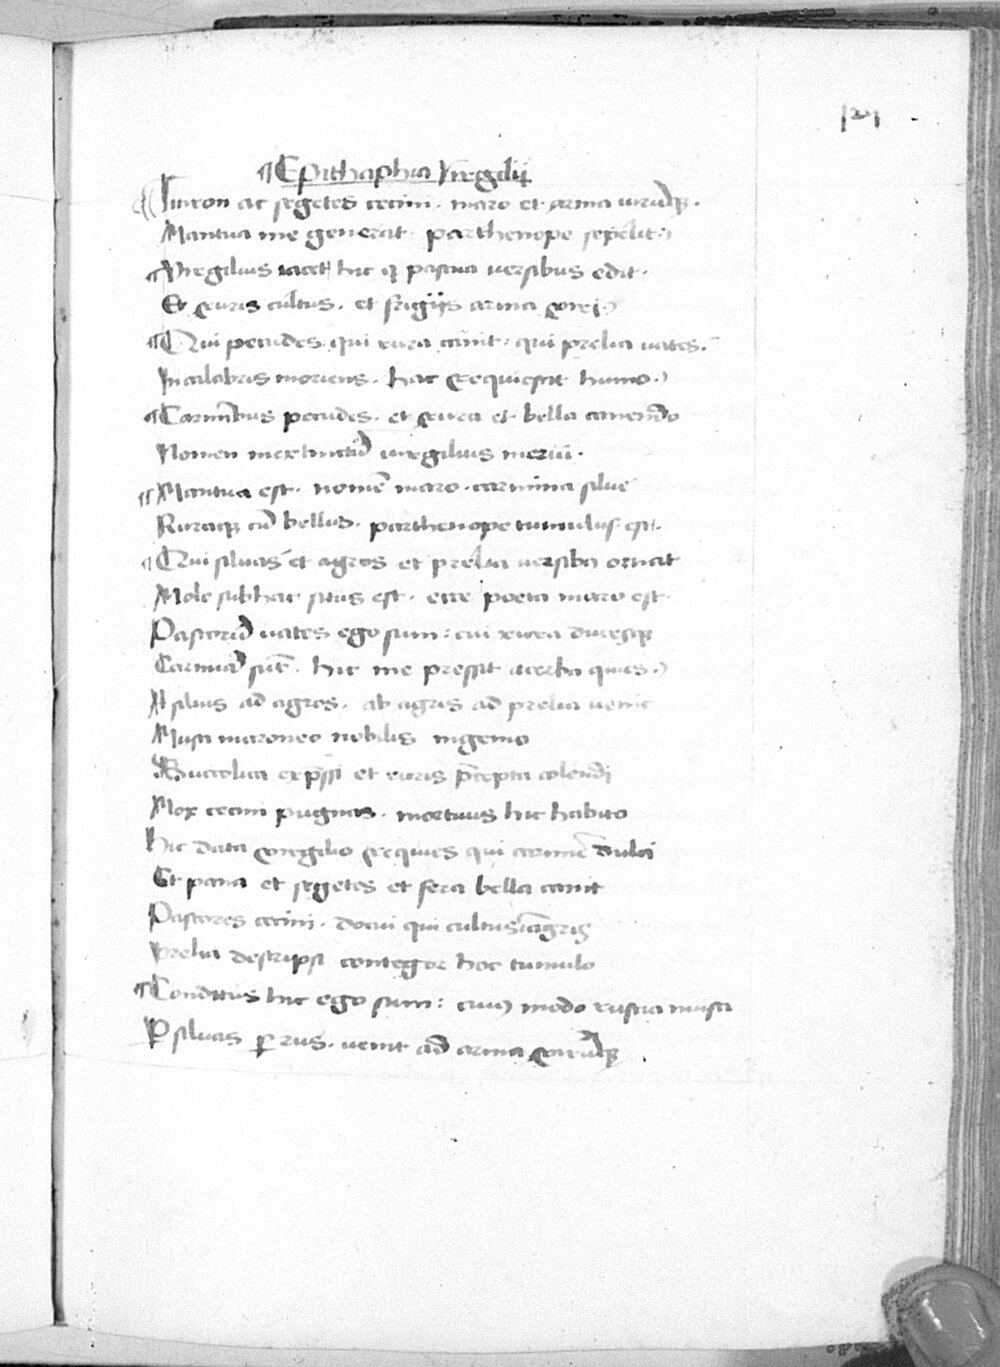 121
¶ Epithaphia Virgilij
Tition ac segetes cecini . maro et arma uirūqꝫ .
Mantua me generat . parthenope sepelit
¶ Virgilius iacet hic qͥ pascua uersibus edit .
Et ruris cultus . et frigijs arma uiri
¶ Qui pecudes qui rura canit . qui prelia uates .
In calabris moriens . hac requiescit humo .
¶ Carmībus pecudes . et rura et bella canendo
Nomen inextinctū uirgilius merui .
¶ Mantua est . nomē maro . carmina silue
Ruraqꝫ cū bellis . parthenope tumulus est .
¶ Qui siluas et agros et prelia uersibꝰ ornat
Mole sub hac situs est . ecce poeta maro est
Pastorū uates ego sum : cui rura ducesqꝫ
Carmīa sūt . hic me pressit acerba quies .
A siluis ad agros . ab agris ad prelia uenit
Musa maroneo nobilis ingenio
Bucolica exp̄ssi et ruris p̄cepta colendi
Mox cecini pugnas . mortuus hic habito
Hic data uirgilio requies qui carmīe dulci
Et pana et segetes et fera bella canit
Pastores cecini . docui qui cultus ī agris
Prelia descripsi contegor hoc tumulo
¶ Conditus hic ego sum : cuiꝰ modo rustica musa
Ꝑ siluas ꝑ rus . uenit ad arma uirūqꝫ .